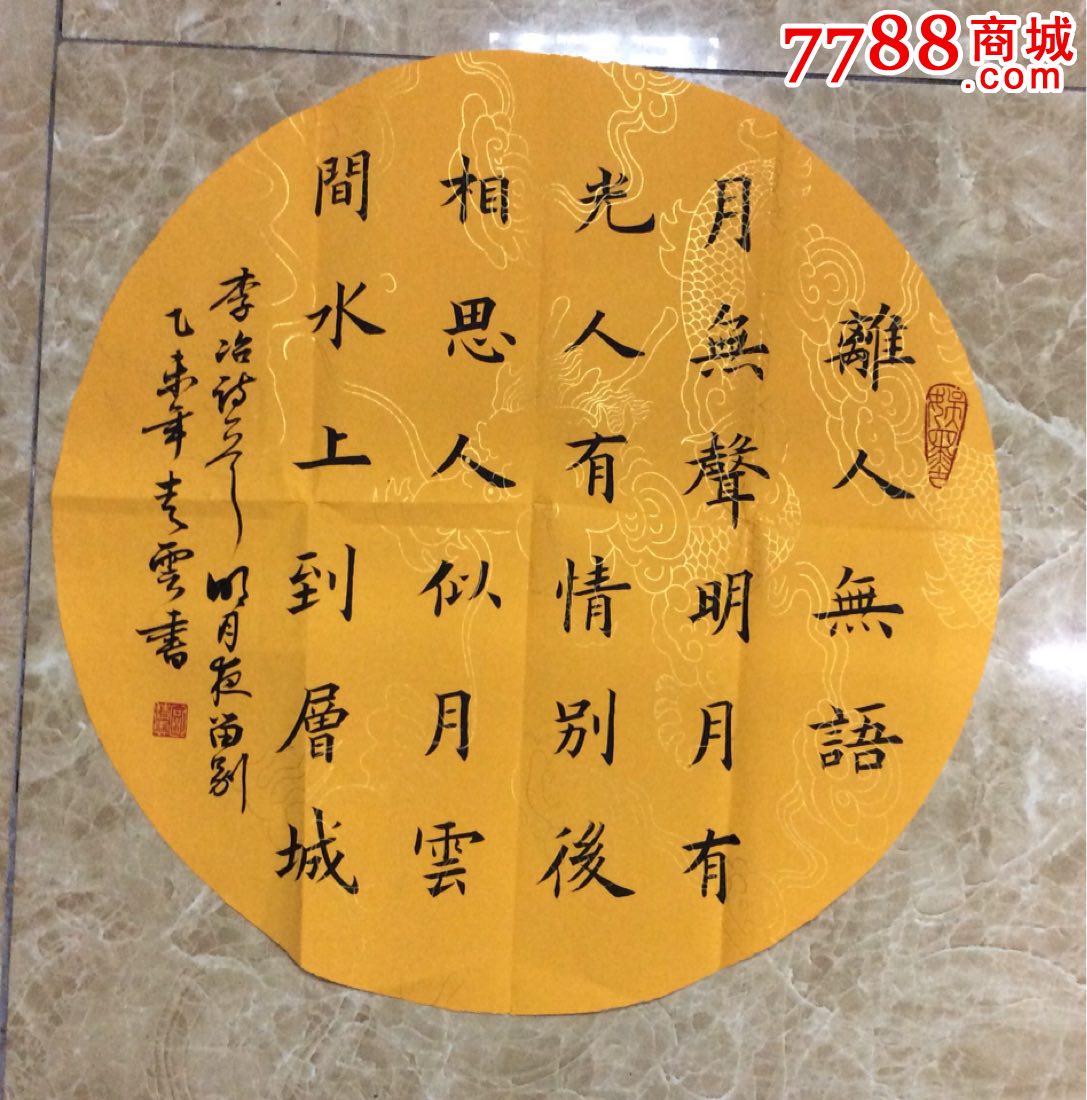 離人無語
月無聲明月有
光人有情别後
相思人似月雲
間水上到層城
李冶詩一首明月夜留别
乙未年青雲書
7788商城
.com